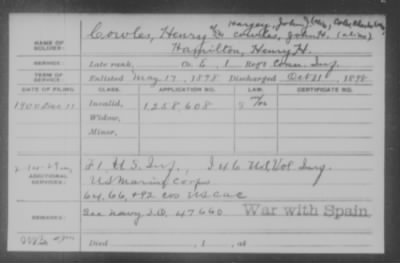 Harvey, John J. (alias), Coles, Charles
NAME OF SOLDIER: Cowles, Henry Cowles, John H. (alias)
Hamilton, Henry H.
SERVICE: Late rank, Co. E, 1 Reg't Conn. Inf.
TERM OF SERVICE: Enlisted May 17, 1898 Discharged Oct 31, 1898
DATE OF FILING. CLASS. APPLICATION NO. LAW. CERTIFICATE NO.
1900 Dec 11 Invalid, 1,258,608
Widow,
Minor,
ADDITIONAL SERVICES: F 1, U S. Inf., I 46 U.S. Vol. Inf.
US Marine Corps
64, 66, +92 cos U S C A C
REMARKS: See Navy S.O. 47660 War with Spain
Died , 1 , at